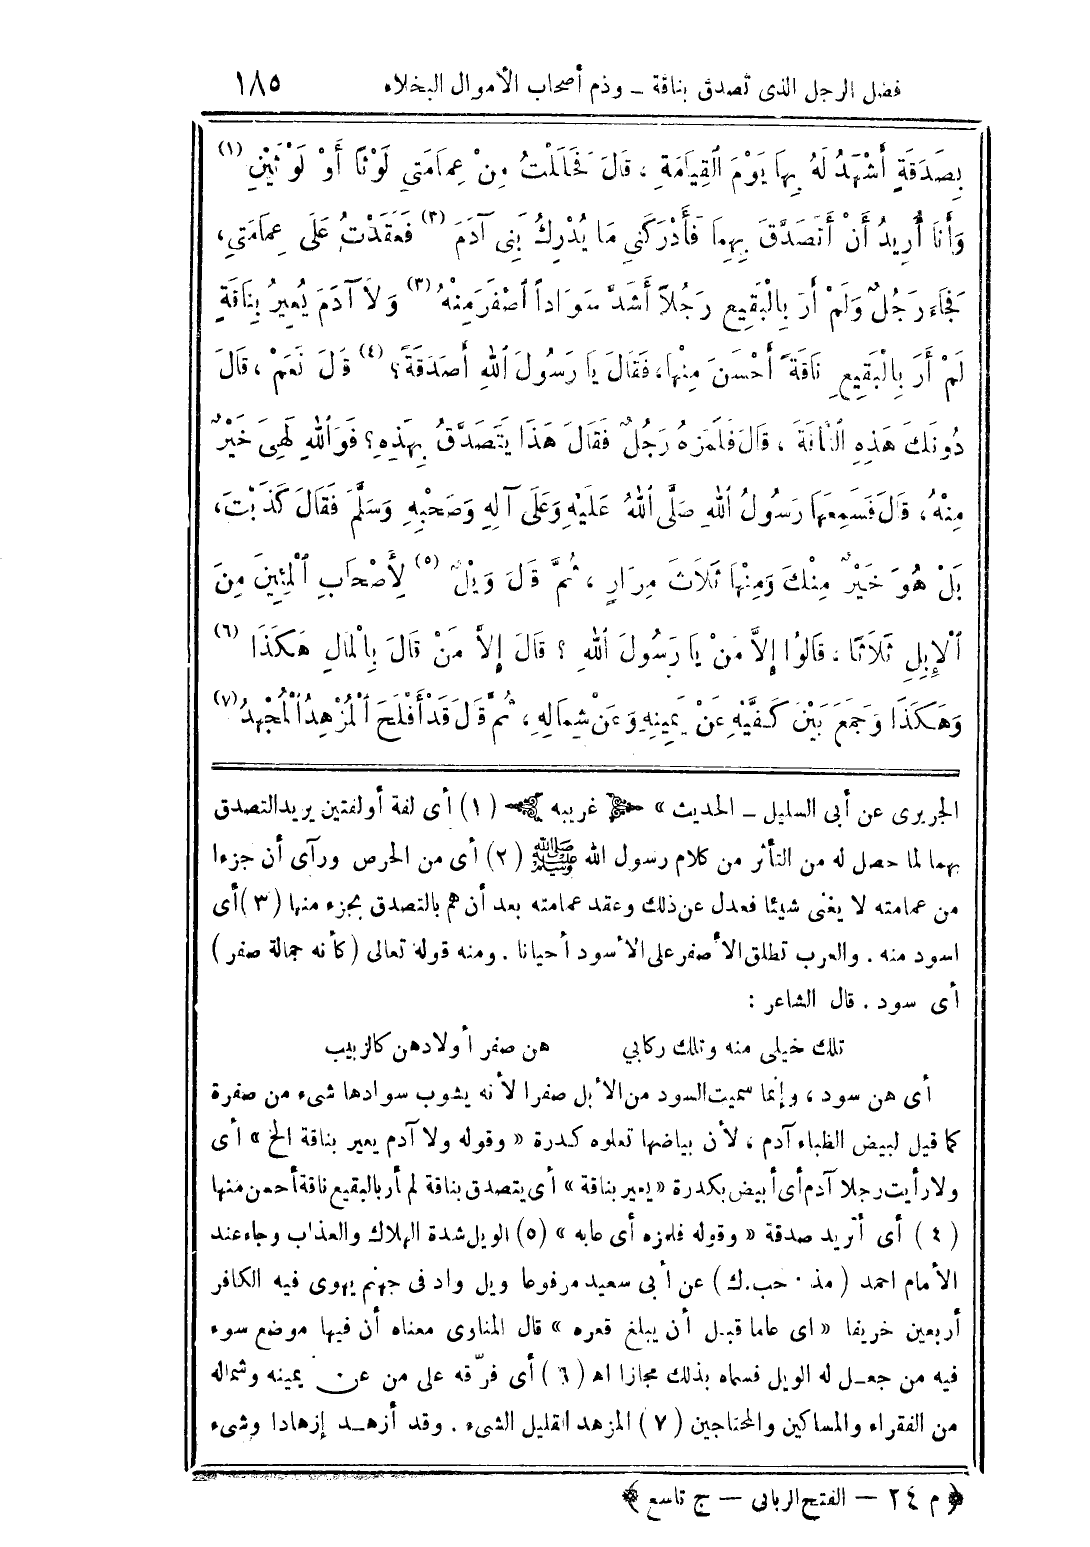 فضل الرجل الذى تصدق بناقة ــ وذم أصحاب الأموال البخلاء ١٨٥
بِصَدَقَةٍ أَشْهَدُ لَهُ بِهَا يَوْمَ الْقِيَامَةِ ، قَالَ فَحَلَلْتُ مِنْ عِمَامَتِي لَوْثًا أَوْ لَوْثَيْنِ (١)
وَأَنَا أُرِيدُ أَنْ أَتَصَدَّقَ بِهِمَا فَأَدْرَكَنِي مَا يُدْرِكُ بَنِى آدَمَ (٢) فَعَقَدْتُ عَلَى عِمَامَتِي،
فَجَاءَ رَجُلٌ وَلَمْ أَرَ بِالْبَقِيعِ رَجُلاً أَشَدَّ سَوَاداً أَصْفَرَ مِنْهُ (٣) وَلاَ آدَمَ يُعِيرُ بِنَاقَةٍ
لَمْ أَرَ بِالْبَقِيعِ نَاقَةً أَحْسَنَ مِنْهَا، فَقَالَ يَا رَسُولَ اللهِ أَصَدَقَةً؟ (٤) قَالَ نَعَمْ ، قَالَ
دُونَكَ هَذِهِ النَّاقَةَ ، قَالَ فَلَمَزَهُ رَجُلٌ فَقَالَ هَذَا يَتَصَدَّقُ بِهَذِهِ؟ فَوَاللهِ لَهِىَ خَيْرٌ
مِنْهُ، قَالَ فَسَمِعَهَا رَسُولُ اللهِ صَلَّى اللهُ عَلَيْهِ وَعَلَى آلِهِ وَصَحْبِهِ وَسَلَّمَ فَقَالَ كَذَبْتَ،
بَلْ هُوَ خَيْرٌ مِنْكَ وَمِنْهَا ثَلاَثَ مِرَارٍ ، ثُمَّ قَالَ وَيْلٌ (٥) لِأَصْحَابِ الْمِئِينَ مِنَ
الْإِبِلِ ثَلاَثًا ، قَالُوا إِلاَّ مَنْ يَا رَسُولَ اللهِ ؟ قَالَ إِلاَّ مَنْ قَالَ بِالْمَالِ هَكَذَا (٦)
وَهَكَذَا وَجَمَعَ بَيْنَ كَفَّيْهِ عَنْ يَمِينِهِ وَعَنْ شِمَالِهِ، ثُمَّ قَالَ قَدْ أَفْلَحَ الْمُزْهِدُ الْمُجْهِدُ (٧)
الجريرى عن أبى السليل ــ الحديث » غريبه (١) أى لفة أولفتين يريدالتصدق
بهما لما حصل له من التأثر من كلام رسول الله ﷺ (٢) أى من الحرص ورآى أن جزءا
من عمامته لا يغنى شيئا فعدل عن ذلك وعقد عمامته بعد أن هم بالتصدق بجزء منها (٣) أى
اسود منه . والعرب تطلق الأصفر على الأسود أحيانا . ومنه قوله تعالى (كأنه جمالة صفر)
أى سود . قال الشاعر :
تلك خيلى منه وتلك ركابي هن صفر أولادهن كالزبيب
أى هن سود ، وإنما سميت السود من الأبل صفرا لأنه يشوب سوادها شىء من صفرة
كما قيل لبيض الظباء آدم ، لأن بياضها تعلوه كدرة « وقوله ولا آدم يعير بناقة الخ » أى
ولارأيت رجلا آدم أى أبيض بكدرة «يعير بناقة » أى يتصدق بناقة لم أر بالبقيع ناقة أحسن منها
(٤) أى أتريد صدقة « وقوله فلمزه أى عابه » (٥) الويل شدة الهلاك والعذاب وجاء عند
الأمام احمد (مذ . حب . ك) عن أبى سعيد مرفوعا ويل واد فى جهنم يهوى فيه الكافر
أربعين خريفا « اى عاما قبل أن يبلغ قعره » قال المناوى معناه أن فيها موضع سوء
فيه من جعل له الويل فسماه بذلك مجازا اه (٦) أى فرّقه على من عن يمينه وشماله
من الفقراء والمساكين والمحتاجين (٧) المزهد القليل الشىء . وقد أزهد إزهادا وشىء
﴿ م ٢٤ — الفتح الربانى — ج تاسع ﴾